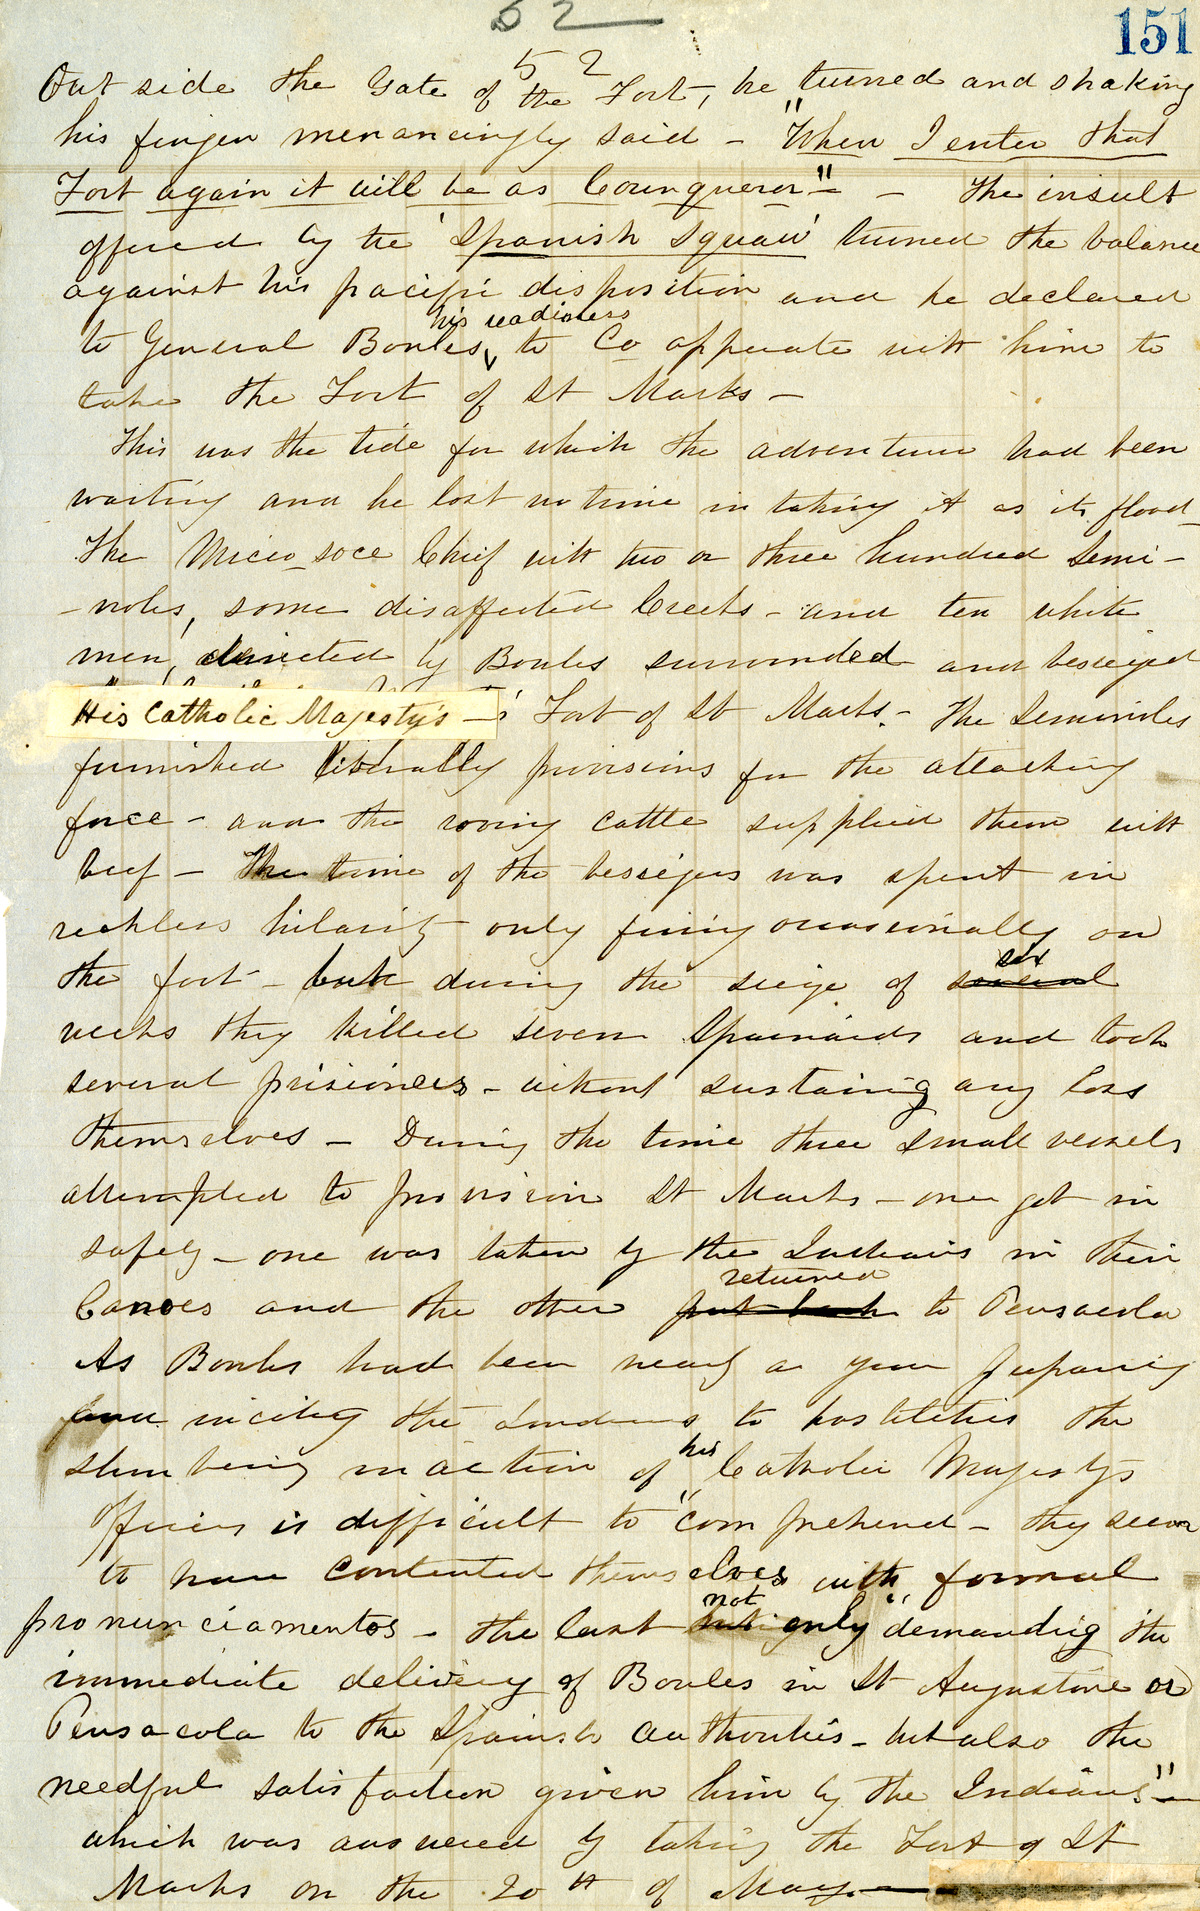 52
151
52
Out side the Gate of the Fort, he turned and shaking
his finger menancingly said - "When I enter that
Fort again it will be as Counqueror" - The insult
offered by the 'Spanish squaw' turned the balance
against his pacific disposition and he declared
his readiness
to General Bowles, to Co opperate with him to
take the Fort of St Marks -
This was the tide for which the adventurer had been
waiting and he lost no time in taking it as its flood -
The Micco_soce Chief with two or three hundred Semi-
-noles, some disaffected Creeks - and ten white
men, directed by Bowles surrounded and beseiged
His Catholic Majesty's - Fort of St Marks. - The Seminoles
furnished liberally provisions for the attacking
force - and the roving cattle supplied them with
beef - The time of the besseigers was spent in
reckless hilarity only firing occasionally on
six
the fort - but during the seige of several
weeks they killed seven Spainards and took
several prisioners - without sustaing any loss
themselves - During the time three small vessels
attempted to provision St Marks - one got in
safely - one was taken by the Indians in their
returned
Canoes and the other put back to Pensacola
As Bowles had been nearly a year preparing
and inciting the Indians to hostilities the
his
slumbering inaction of Catholic Majestys
Officers is difficult to "comprehend - they seem
to have contented themselves with formal
not
pronunciamentos - the last not only "demanding the
immediate delivery of Bowles in St Augustine or
Pensacola to the Spainsh authorities - but also the
needful satisfaction given him by the Indians" -
which was answered by taking the Fort of St
Marks on the 20th of May. -